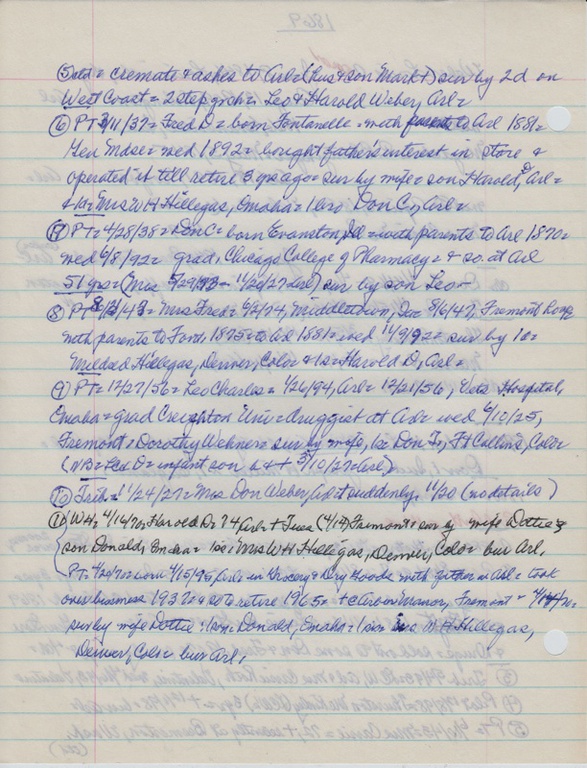 1869
⑤ctd = cremate & ashes to Arl = (hus & son Mark +) sur by 2d on
West Coast = 2 step grch = Leo & Harold Weber, Arl =
⑥ PT 3/11/37 = Fred D = born Fontanelle = with parents to Arl 1881 =
Gen Mdse = wed 1892 = bought father's interest in store &
operated it till retire 3 yrs ago = sur by wife = son Harold D, Arl =
& 1d = Mrs W H Hillegas, Omaha = 1 bro Don C, Arl =
⑦ PT = 4/28/38 = Don C = born Evanston, Ill = with parents to Arl 1870 =
wed 6/8/92 = grad, Chicago College of Pharmacy = & so. at Arl
51 yrs = (Mrs 5/29/73 - 11/20/27 Arl) sur by son Leo =
⑧ PT 8/2/43 = Mrs Fred = 6/2/74, Middletown, 8/6/47, Fremont Hosp
with parents to Font, 1875 = to Arl 1881 = wed 11/9/92 = sur by 1d =
Mildred Hillegas, Denver, Colo = & 1s = Harold D, Arl =
⑨ PT = 12/27/56 = Leo Charles = 1/26/94, Arl = 12/21/56, Vets Hospital,
Omaha = grad Creighton Univ = druggist at Arl = wed 6/10/25,
Fremont = Dorothy Wehner = sur by wife, 1s = Don Jr, Ft Collins, Colo
(NB = Leo D = infant son b & + 3/10/27 = Arl)
⑩ Trib = 11/24/27 = Mrs Don Weber, Arl = + suddenly, 11/20 (no details)
⑪ WH = 4/16/70 = Harold D = 74 Arl = + Tues (4/14) Fremont = sur by wife Dottie =
son Donald, Omaha = 1 sis, Mrs W H Hillegas, Denver, Colo = bur Arl,
PT = born 4/15/95, Arl = in Grocery & Dry Goods with father at Arl = took
over business 1937 = & so to retire 1965 = + @ Arbor Manor, Fremont = 4/14/70 =
sur by wife Dottie = 1 son = Donald, Omaha = 1 sis W H Hillegas,
Denver, Colo = bur Arl,